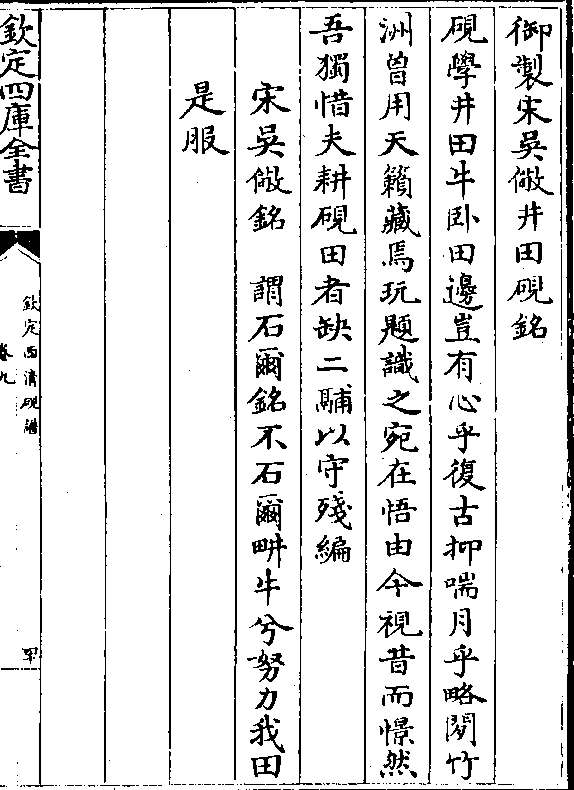 御製宋吳儆井田硯銘
硯學井田牛卧田邊豈有心乎復古抑喘月乎略閱竹
洲曾用天籟藏焉玩題識之宛在悟由今視昔而憬然
吾獨惜夫耕硯田者缺二䮒以守殘編
宋吳儆銘　謂石爾銘不石爾畊牛兮努力我田
是服
欽定四庫全書
欽定西清硯譜
卷九